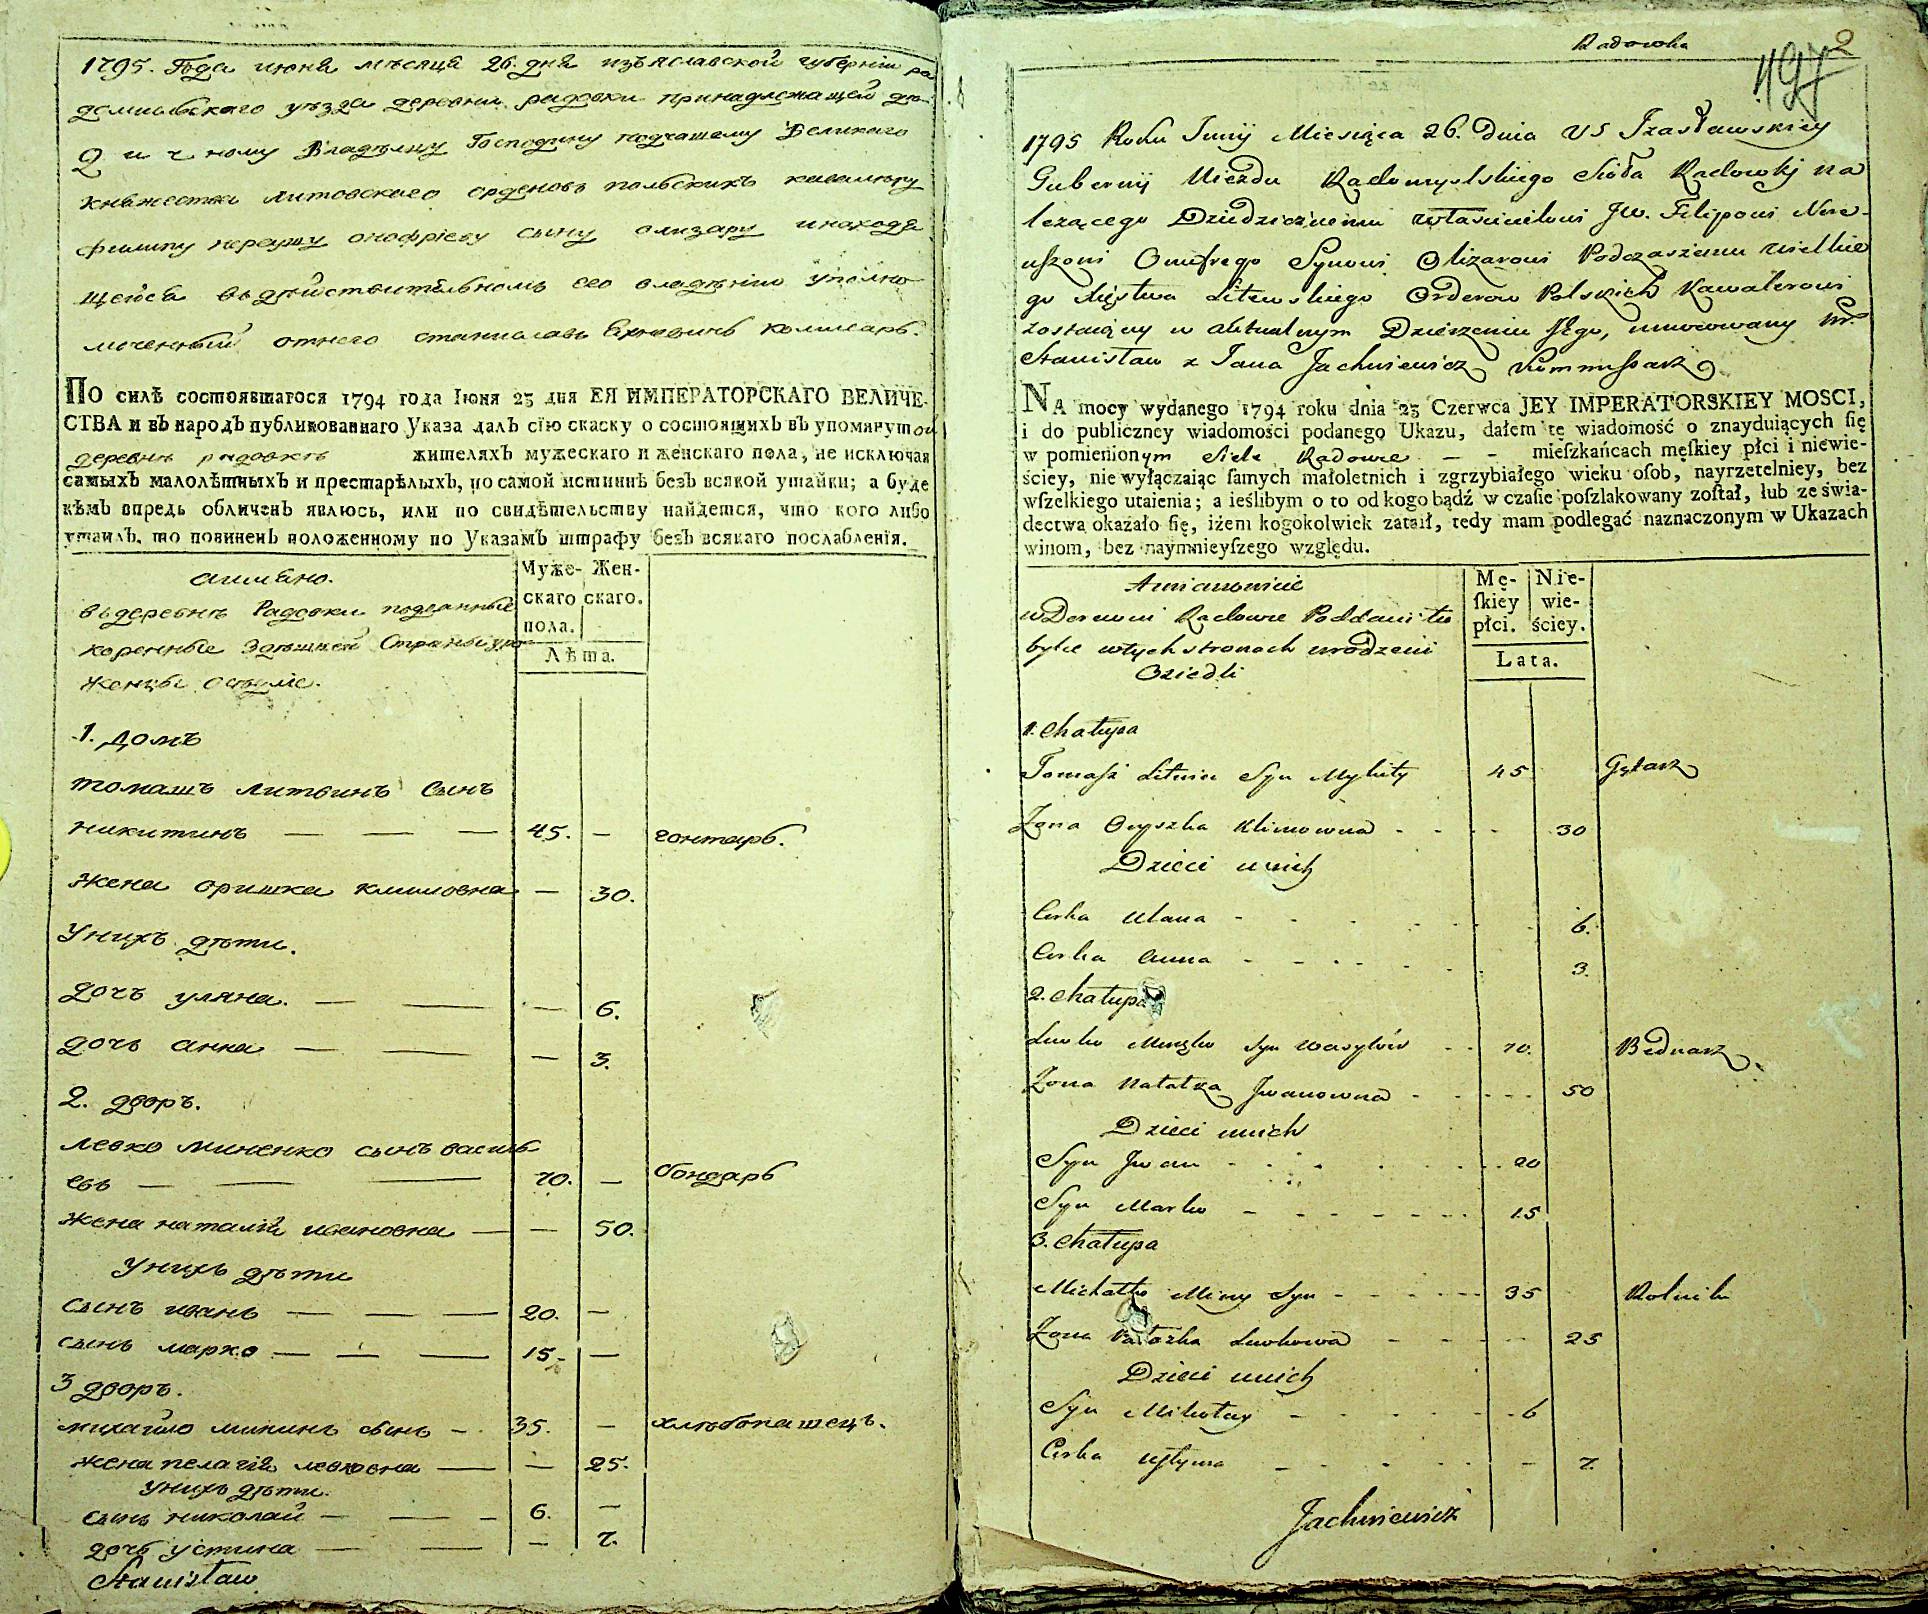 1795. Года июня месяца 26. дня изъяславской губернiи ра
домысльскаго уезда деревни радовки принадлежащей де
дичному Владелцу Господину подчашему Великаго
княжества литовскаго орденовъ польскихъ кавалеру
филипу нереушу онофрiеву сыну олизару находя
щейся въ действительномъ его владенiи уполно
моченный отнего станиславъ Яхневичъ коммисаръ.
ПО силѣ состоявшагося 1794 года Iюня 23 дня ЕЯ ИМПЕРАТОРСКАГО ВЕЛИЧЕ-
СТВА и въ народъ публикованнаго Указа далъ сїю скаску о состоящихъ въ упомянутой
деревнѣ радовкѣ жителяхъ мужескаго и женскаго пола, не исключая
самыхъ малолѣтныхъ и престарѣлыхъ, по самой истиннѣ безъ всякой утайки; а буде
кѣмъ впредь обличенъ явлюсь, или по свидѣтельству найдется, что кого либо
утаилъ, то повиненъ положенному по Указамъ штрафу безъ всякаго послабленїя.
аимянно.
въ деревнѣ Радовки подданные
коренные здѣшней Страны уро
женцы оседлые.
Муже-
скаго
пола.
Жен-
скаго.
Лѣта.
1. домъ
томашъ литвинъ сынъ
никитинъ — — — 45. — гонтарь.
жена оришка климовна — 30.
Унихъ дѣти.
дочь уляна. — — — 6.
дочь анна — — — 3.
2. дворъ.
левко миненко сынъ василь
евъ — — — 70. — бондарь
жена наталiя ивановна — — 50.
Унихъ дѣти
сынъ иванъ — — — 20. —
сынъ марко — — — 15. —
3 дворъ.
михайло мининъ сынъ — 35. — хлѣбопашецъ.
жена пелагiя левковна — — 25.
унихъ дѣти.
сынъ николай — — — 6. —
дочь устина — — — 7.
Stanisław
Radowka
2
497
1795 Roku Junij Miesiąca 26. Dnia VS Izasławskiey
Gubernij Uiezdu Radomyslskiego Sioła Radowkj na
leżącego Dziedzicznemu właścicielowi Jw. Filipowi Nere-
uszowi Onufrego Synowi Olizarowi Podczaszemu wielkie
go Xięstwa Litewskiego Orderow Polskich Kawalerowi
zostaiący w aktualnym Dzierżeniu Jego, umocowany W.
Stanisław z Jana Jachniewicz Kommissarz
NA mocy wydanego 1794 roku dnia 23 Czerwca JEY IMPERATORSKIEY MOSCI,
i do publiczney wiadomości podanego Ukazu, dałem tę wiadomość o znayduiących ſię
w pomienionym Siele Radowce — — mieſzkańcach męſkiey płci i niewie-
ściey, nie wyłączaiąc ſamych małoletnich i zgrzybiałego wieku oſob, nayrzetelniey, bez
wſzelkiego utaienia; a ieślibym o to od kogo bądź w czaſie poſzlakowany zoſtał, lub ze świa-
dectwa okazało ſię, iżem kogokolwiek zataił, tedy mam podlegać naznaczonym w Ukazach
winom, bez naymnieyſzego względu.
Amianowicie
w Derewni Radowce Poddani tu
bylce wtych stronach urodzeni
Osiedli
Mę-
ſkiey
płci.
Nie-
wie-
ściey.
Lata.
1. Chałupa
Tomasz Litwin Syn Mykity 45 Gątarz
Żona Oryszka Klimowna - - - - 30
Dzieci unich
Corka Ulana - - - - - 6.
Corka Anna - - - - - 3.
2. Chałupa
Lewko Minęko Syn Wasylów - - 70. Bednarz
Żona Natałka Jwanowna - - - - 50
Dzieci unich
Syn Jwan - - - - - - 20
Syn Marko - - - - - - 15
3. Chałupa
Michałko Miny Syn - - - - 35 Rolnik
Żona Pałażka Lewkowna - - - - 25
Dzieci unich
Syn Mikołay - - - - - 6
Corka Ustyma - - - - - 7.
Jachniewicz